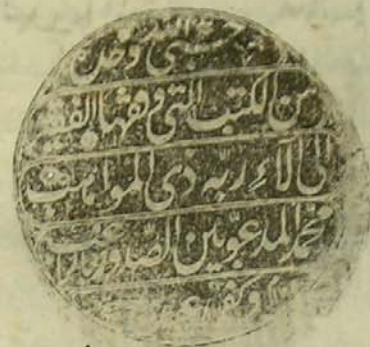 حسبي الله وحده
من الكتب التي وقفها الفقير
الى آلاء ربه ذي المواهب
محمد المدعو بين الصدور براغب
وكفى